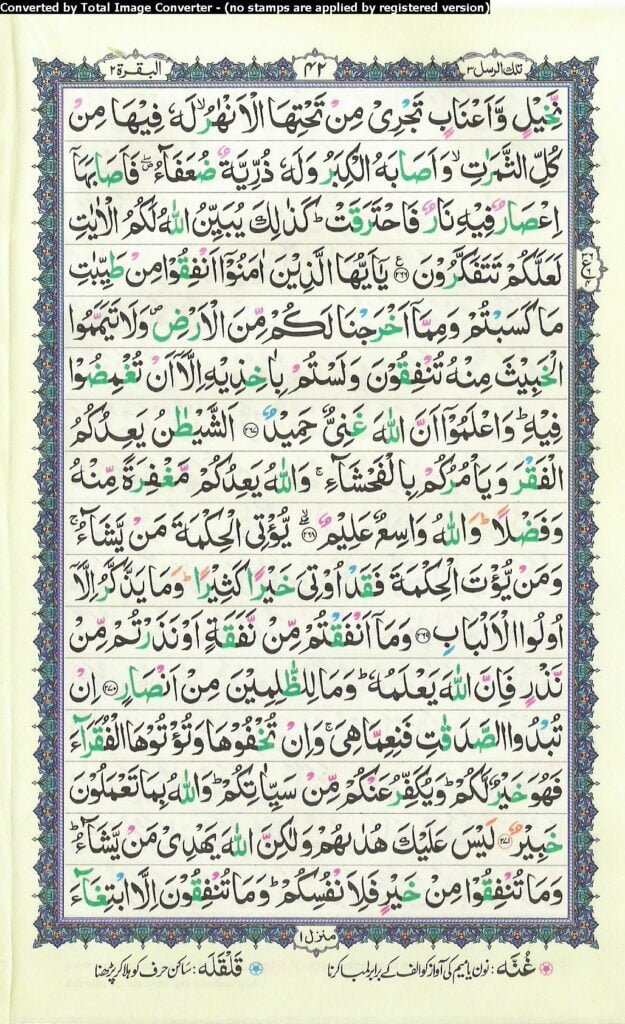 Converted by Total Image Converter - (no stamps are applied by registered version)
تلك الرسل ٣
٤٢
البقرة ٢
نَّخِيْلٍ وَّاَعْنَابٍ تَجْرِيْ مِنْ تَحْتِهَا الْاَنْهٰرُ ۙ لَهٗ فِيْهَا مِنْ
كُلِّ الثَّمَرٰتِ ۙ وَاَصَابَهُ الْكِبَرُ وَلَهٗ ذُرِّيَّةٌ ضُعَفَآءُ ۖ فَاَصَابَهَاۤ
اِعْصَارٌ فِيْهِ نَارٌ فَاحْتَرَقَتْ ؕ كَذٰلِكَ يُبَيِّنُ اللّٰهُ لَكُمُ الْاٰيٰتِ
لَعَلَّكُمْ تَتَفَكَّرُوْنَ ۝٢٦٦ يٰۤاَيُّهَا الَّذِيْنَ اٰمَنُوْۤا اَنْفِقُوْا مِنْ طَيِّبٰتِ
مَا كَسَبْتُمْ وَمِمَّاۤ اَخْرَجْنَا لَكُمْ مِّنَ الْاَرْضِ ۪ وَلَا تَيَمَّمُوا
الْخَبِيْثَ مِنْهُ تُنْفِقُوْنَ وَلَسْتُمْ بِاٰخِذِيْهِ اِلَّاۤ اَنْ تُغْمِضُوْا
فِيْهِ ؕ وَاعْلَمُوْۤا اَنَّ اللّٰهَ غَنِيٌّ حَمِيْدٌ ۝٢٦٧ اَلشَّيْطٰنُ يَعِدُكُمُ
الْفَقْرَ وَيَاْمُرُكُمْ بِالْفَحْشَآءِ ۚ وَاللّٰهُ يَعِدُكُمْ مَّغْفِرَةً مِّنْهُ
وَفَضْلًا ؕ وَاللّٰهُ وَاسِعٌ عَلِيْمٌ ۝٢٦٨ۙ يُّؤْتِي الْحِكْمَةَ مَنْ يَّشَآءُ ۚ
وَمَنْ يُّؤْتَ الْحِكْمَةَ فَقَدْ اُوْتِيَ خَيْرًا كَثِيْرًا ؕ وَمَا يَذَّكَّرُ اِلَّاۤ
اُولُوا الْاَلْبَابِ ۝٢٦٩ وَمَاۤ اَنْفَقْتُمْ مِّنْ نَّفَقَةٍ اَوْ نَذَرْتُمْ مِّنْ
نَّذْرٍ فَاِنَّ اللّٰهَ يَعْلَمُهٗ ؕ وَمَا لِلظّٰلِمِيْنَ مِنْ اَنْصَارٍ ۝٢٧٠ اِنْ
تُبْدُوا الصَّدَقٰتِ فَنِعِمَّا هِيَ ۚ وَاِنْ تُخْفُوْهَا وَتُؤْتُوْهَا الْفُقَرَآءَ
فَهُوَ خَيْرٌ لَّكُمْ ؕ وَيُكَفِّرُ عَنْكُمْ مِّنْ سَيِّاٰتِكُمْ ؕ وَاللّٰهُ بِمَا تَعْمَلُوْنَ
خَبِيْرٌ ۝٢٧١ لَيْسَ عَلَيْكَ هُدٰىهُمْ وَلٰكِنَّ اللّٰهَ يَهْدِيْ مَنْ يَّشَآءُ ؕ
وَمَا تُنْفِقُوْا مِنْ خَيْرٍ فَلِاَنْفُسِكُمْ ؕ وَمَا تُنْفِقُوْنَ اِلَّا ابْتِغَآءَ
منزل ١
غُنَّه: نون یا میم کی آواز کو الف کے برابر لمبا کرنا
قَلْقَلَه: ساکن حرف کو ہلا کر پڑھنا